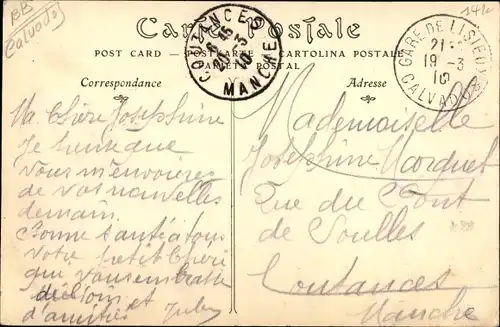 BB
Calvados
Carte Postale
POST CARD — POSTKARTE — CARTOLINA POSTALE
TARJETA POSTAL
COUTANCES
MANCHE
GARE DE LISIEUX
21
19 - 3
10
CALVADOS
Correspondance
Adresse
Ma Chère Joséphine
Je
que
vous m'envoirez
de vos nouvelles
demain.
Bonne santé a tous
Votre petit Chéri
qui vous embrasse
et
d'amitiés Jules
Mademoiselle
Joséphine Marquet
Rue du Pont
de Soulles
Coutances
Manche